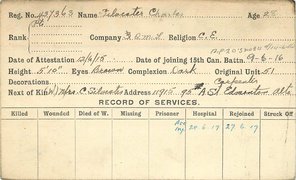 Reg. No. 437363 Name Silvester Charles Age 25
Pte.
Rank Company 3 Religion C.E.
Date of Attestation 5/6/15 Date of joining 15th Can. Battn. 9-6-16
Height 5'10" Eyes Brown Complexion Dark Original Unit 51
Decorations Carpenter
Next of Kin (W) Mrs. C Silvester Address 11915 95 A St Edmonton Alta
RECORD OF SERVICES.
Killed Wounded Died of W. Missing Prisoner Hospital Rejoined Struck Off
20.6.17 27.6.17